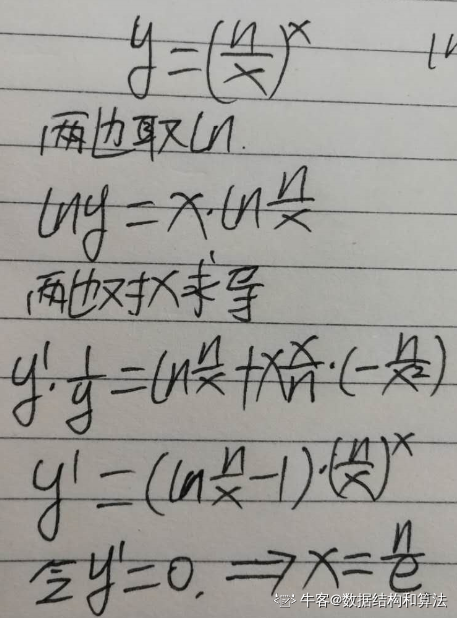 y=(n/x)^x
两边取ln.
lny=x·ln n/x
两边对x求导
y'·1/y=ln n/x+x x/n·(-n/x²)
y'=(ln n/x-1)·(n/x)^x
令y'=0. ⇒x=n/e
牛客@数据结构和算法